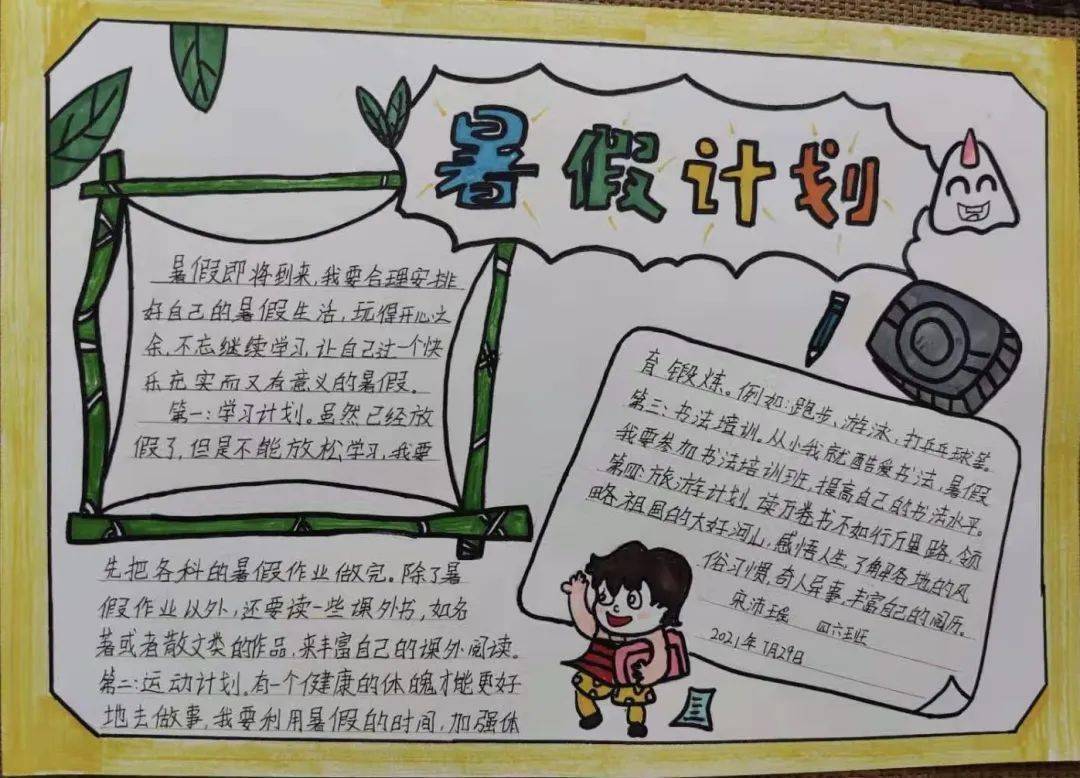 暑假计划
暑假即将到来,我要合理安排
好自己的暑假生活,玩得开心之
余,不忘继续学习,让自己过一个快
乐充实而又有意义的暑假。
第一:学习计划。虽然已经放
假了,但是不能放松学习,我要
先把各科的暑假作业做完。除了暑
假作业以外,还要读一些课外书,如名
著或者散文类的作品,来丰富自己的课外阅读。
第二:运动计划。有一个健康的体魄才能更好
地去做事,我要利用暑假的时间,加强体
育锻炼。例如:跑步、游泳、打乒乓球等。
第三:书法培训。从小我就酷爱书法,暑假
我要参加书法培训班,提高自己的书法水平。
第四:旅游计划。读万卷书不如行万里路,领
略祖国的大好河山,感悟人生,了解各地的风
俗习惯,奇人异事,丰富自己的阅历。
宋沛瑶 四六班
2021年7月29日